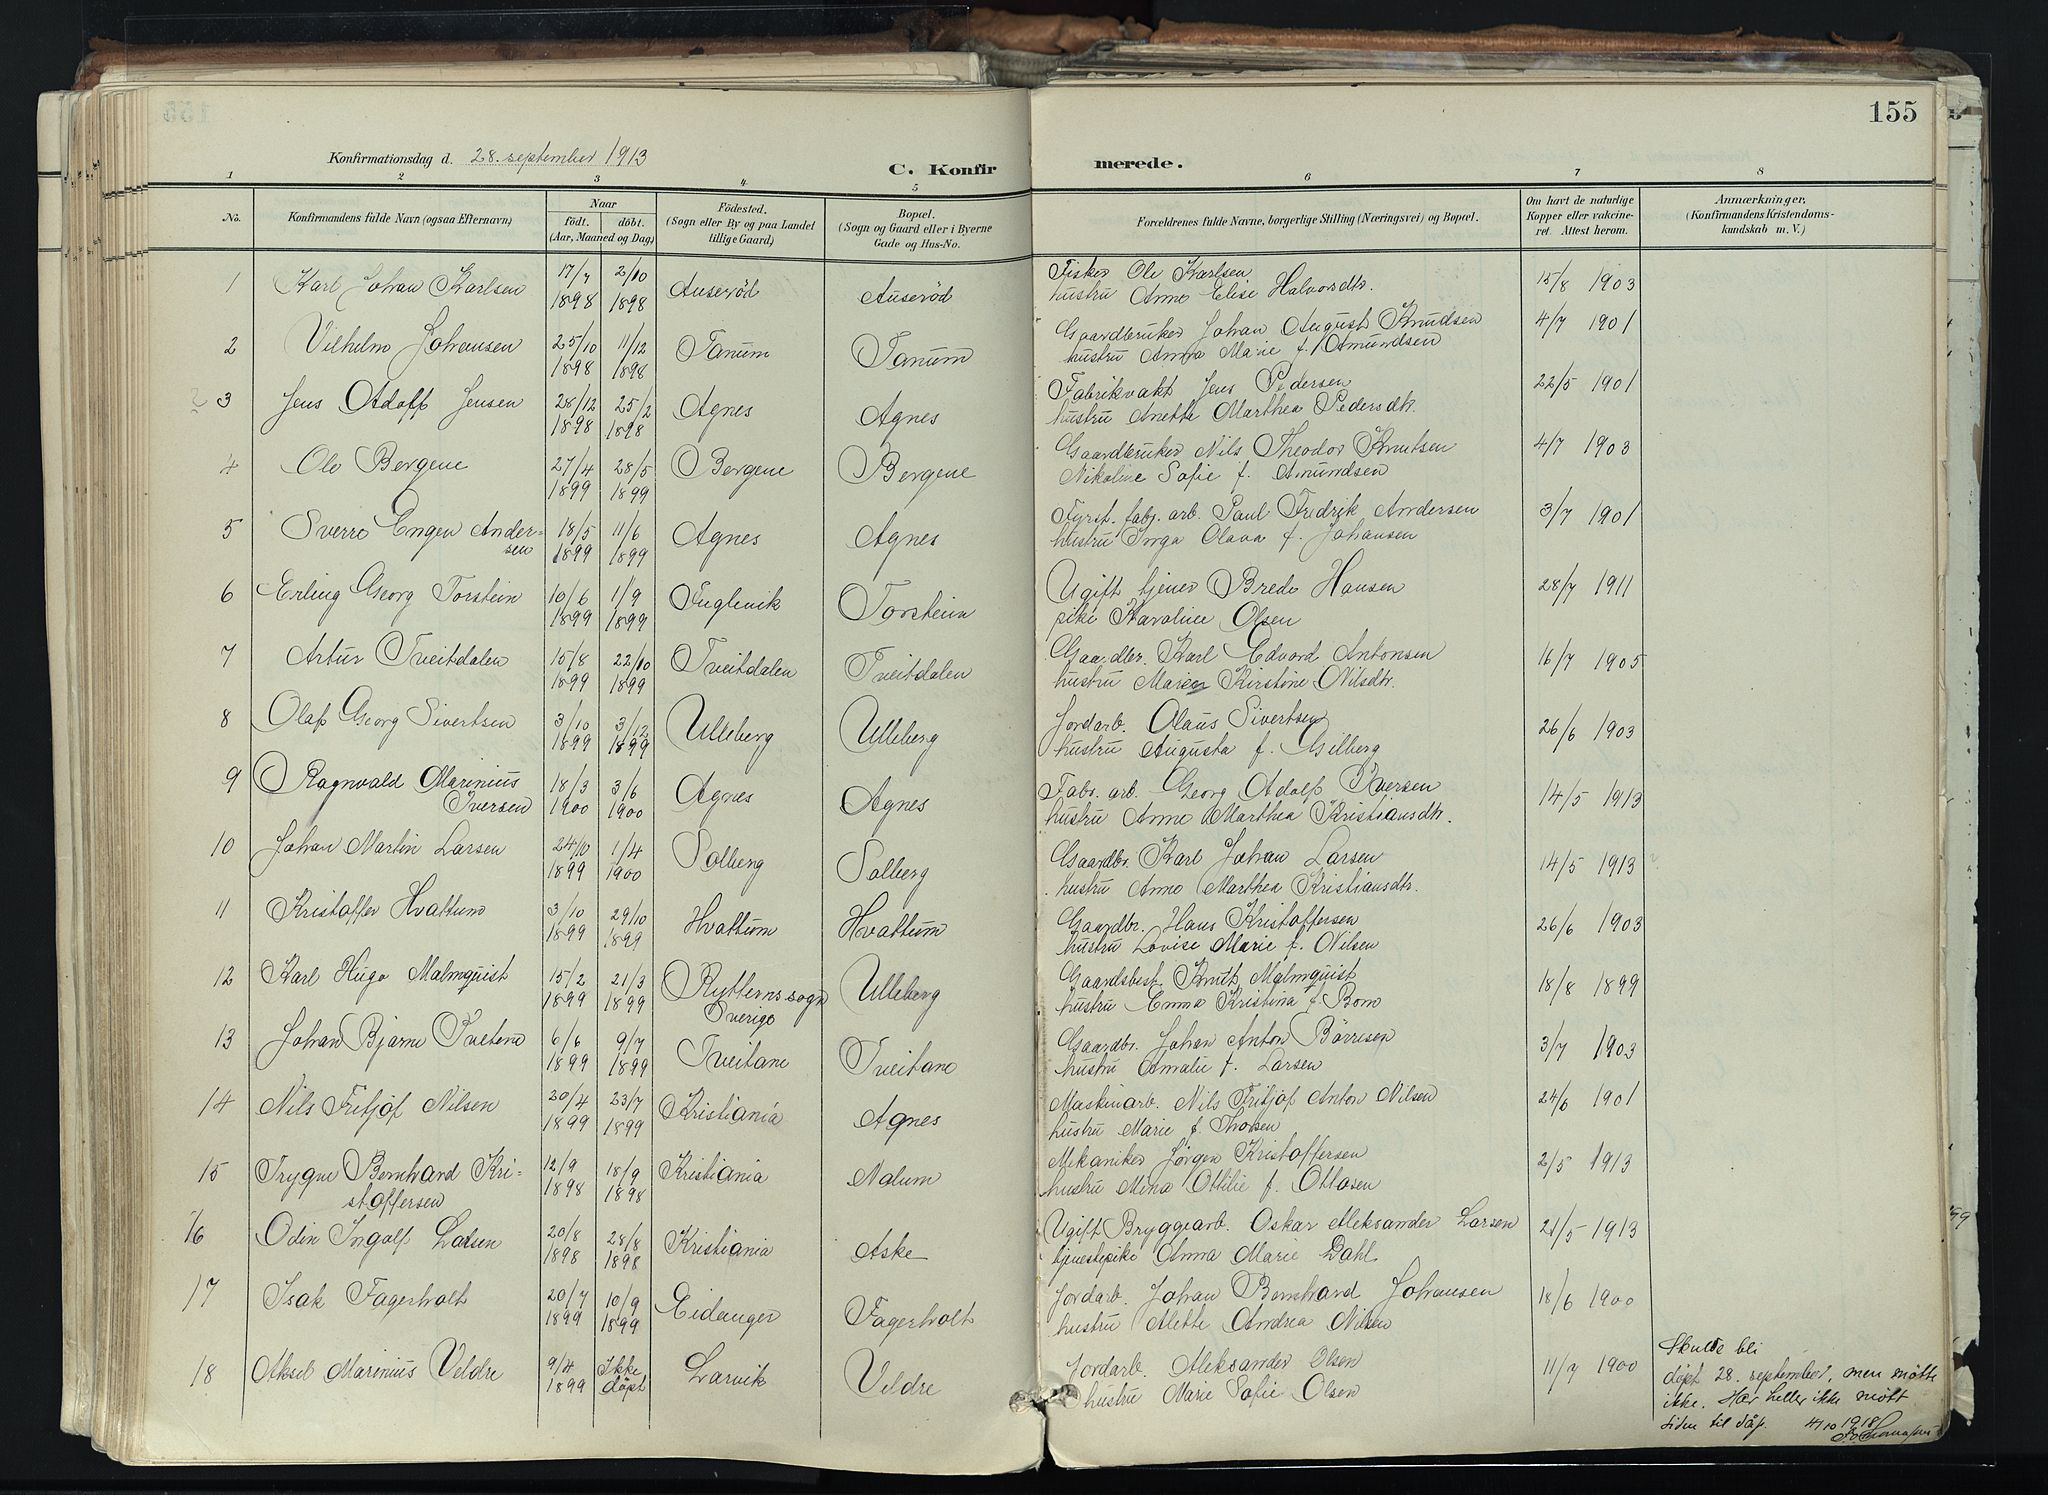 155
Konfirmationsdag d. 28. september 1913
C. Konfirmerede.
1 2 3 4 5 6 7 8
No. Konfirmandens fulde Navn (ogsaa Efternavn) Naar födt. döbt. (Aar, Maaned og Dag) Födested. (Sogn eller By og paa Landet tillige Gaard) Bopæl. (Sogn og Gaard eller i Byerne Gade og Hus-No. Forældrenes fulde Navne, borgerlige Stilling (Næringsvei) og Bopæl. Om havt de naturlige Kopper eller vakcineret. Attest herom. Anmærkninger, (Konfirmandens Kristendomskundskab m. V.)
1 Karl Johan Karlsen 17/7 1898 2/10 1898 Auseröd Auseröd Fisker Ole Karlsen 15/8 1903
hustru Anne Elise Halvorsdtr.
2 Vilhelm Johansen 25/10 1898 11/12 1898 Tanum Tanum Gaardbruker Johan August Knudsen 4/7 1901
hustru Anna Marie f. Amundsen
3 Jens Adolf Jensen 28/12 1898 25/2 1898 Agnes Agnes Fabrikvakt Jens Pedersen 22/5 1901
hustru Anette Marthea Pedersdtr.
4 Ole Bergene 27/4 1899 28/5 1899 Bergene Bergene Gaardbruker Nils Theodor Knutsen 4/7 1903
Nikoline Sofie f. Amundsen
5 Sverre Engen Ander- 18/5 1899 11/6 1899 Agnes Agnes Fyrst. fabj. arb. Paul Fredrik Andersen 3/7 1901
sen hustru Inga Olava f. Johansen
6 Erling Georg Torstein 10/6 1899 1/9 1899 Fuglevik Torstein Ugift tjener Brede Hansen 28/7 1911
pike Karoline Olsen
7 Artur Tveitdalen 15/8 1899 22/10 1899 Tveitdalen Tveitdalen Gaardbr. Karl Edvard Antonsen 16/7 1905
hustru Maren Kirstine Nilsdtr.
8 Olaf Georg Sivertsen 3/10 1899 3/12 1899 Ulleberg Ulleberg Jordarb. Olaus Sivertsen 26/6 1903
hustru Augusta f. Gilberg
9 Ragnvald Marinius 18/3 1900 3/6 1900 Agnes Agnes Fabr. arb. Georg Adolf Iversen 14/5 1913
Iversen hustru Anne Marthea Kristiansdtr.
10 Johan Martin Larsen 24/10 1899 1/4 1900 Solberg Solberg Gaardbr. Karl Johan Larsen 14/5 1913 ?
hustru Anne Marthea Kristiansdtr.
11 Kristoffer Hvattum 3/10 1899 29/10 1899 Hvattum Hvattum Gaardbr. Hans Kristoffersen 26/6 1903
hustru Lovise Marie f. Nilsen
12 Karl Hugo Malmquist 15/2 1899 21/3 1899 Rytterns sogn Sverige Ulleberg Gaardsbest. Knut Malmquist 18/8 1899
hustru Emma Kristina f. Bom
13 Johan Bjarne Tvetene 6/6 1899 9/7 1899 Tveitane Tveitane Gaardbr. Johan Anton Börresen 3/7 1903
hustru Amalie f. Larsen
14 Nils Fritjof Nilsen 20/4 1899 23/7 1899 Kristiania Agnes Maskinarb. Nils Fritjof Anton Nilsen 24/6 1901
hustru Marie f. Thorsen
15 Trygve Bernhard Kri- 12/9 1898 18/9 1898 Kristiania Nalum Mekaniker Jörgen Kristoffersen 2/5 1913
stoffersen hustru Mina Ottilie f. Ottosen
16 Odin Ingolf Larsen 20/8 1898 28/8 1898 Kristiania Aske Ugift Bryggearb. Oskar Aleksander Larsen 21/5 1913
tjenestepike Anna Marie Dahl
17 Isak Fagerholt 20/7 1899 10/9 1899 Eidanger Fagerholt Jordarb. Johan Bernhard Johansen 18/6 1900
hustru Alette Andrea Nilsen
18 Aksel Marinius Veldre 9/4 1899 Ikke döpt Larvik Veldre Jordarb. Aleksander Olsen 11/7 1900
hustru Marie Sofie Olsen
Skulde bli
döpt 28. september, men mötte
ikke. Har heller ikke mött
siden til dåp. 4/10 1918